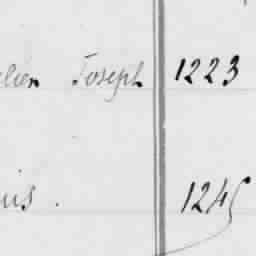 lien Joseph 1223
uis. 1245